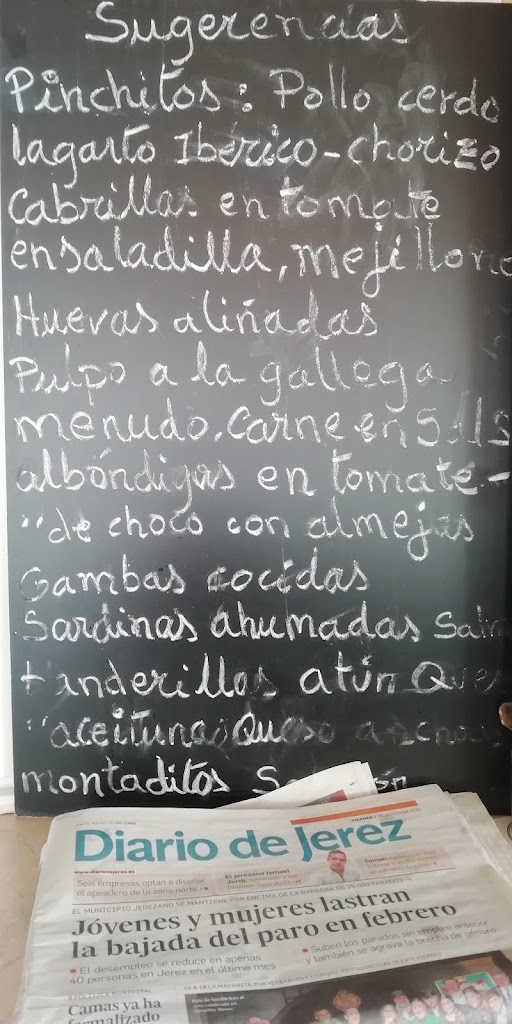 Sugerencias
Pinchitos: Pollo cerdo
lagarto Ibérico-chorizo
Cabrillas en tomate
ensaladilla, mejillone
Huevas aliñadas
Pulpo a la gallega
menudo. Carne en Sals
albóndigas en tomate-
" de choco con almejas
Gambas cocidas
Sardinas ahumadas Salm
banderillas atún Ques
" aceituna, Queso anchoas
montaditos
Diario de Jerez
www.diariodejerez.es
Seis empresas optan a diseñar
el apeadero de la zona norte
El jerezano Ismael
EL MUNICIPIO JEREZANO SE MANTIENE POR ENCIMA DE LA BARRERA DE
Jóvenes y mujeres lastran
la bajada del paro en febrero
• El desempleo se reduce en apenas
40 personas en Jerez en el último mes
• Suben los parados sin empleo anterior
y también se agrava la brecha de género
Camas ya ha
formalizado